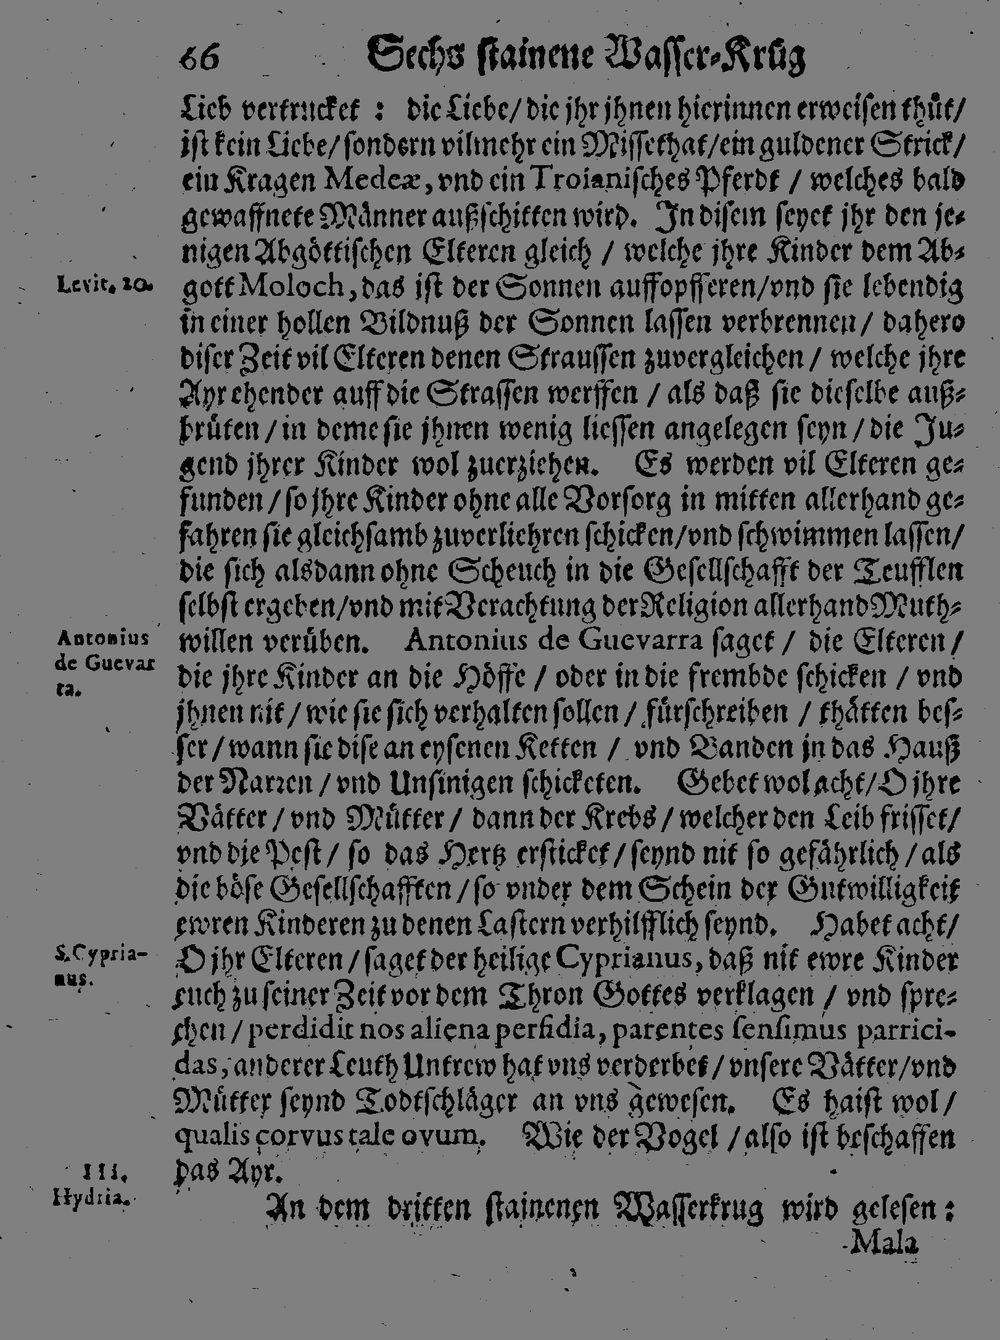 66 Sechs stainene Wasser-Krüg
Lieb vertrucket : die Liebe/ die jhr jhnen hierinnen erweisen thüt/
ist kein Liebe/ sondern vilmehr ein Missethat/ ein guldener Strick/
ein Kragen Medeæ, vnd ein Troianisches Pferdt / welches bald
gewaffnete Männer außschitten wird. In disem seyet jhr den je-
nigen Abgöttischen Elteren gleich / welche jhre Kinder dem Ab-
Levit. 20. gott Moloch, das ist der Sonnen auffopfferen/vnd sie lebendig
in einer hollen Bildnuß der Sonnen lassen verbrennen/ dahero
diser Zeit vil Elteren denen Straussen zuvergleichen / welche jhre
Ayr ehender auff die Strassen werffen / als daß sie dieselbe auß-
brüten / in deme sie jhnen wenig liessen angelegen seyn / die Ju-
gend jhrer Kinder wol zuerziehen. Es werden vil Elteren ge-
funden / so jhre Kinder ohne alle Vorsorg in mitten allerhand ge-
fahren sie gleichsamb zuverliehren schicken/vnd schwimmen lassen/
die sich alsdann ohne Scheuch in die Gesellschafft der Teufflen
selbst ergeben/vnd mit Verachtung der Religion allerhand Muth-
Antonius de Guevar ra. willen verüben. Antonius de Guevarra saget / die Elteren /
die jhre Kinder an die Höffe / oder in die frembde schicken / vnd
jhnen nit / wie sie sich verhalten sollen / fürschreiben / thätten bes-
ser / wann sie dise an eysenen Ketten / vnd Banden in das Hauß
der Narren / vnd Unsinigen schicketen. Gebet wol acht/ O jhre
Vätter / vnd Mütter / dann der Krebs / welcher den Leib frisset/
vnd die Pest / so das Hertz ersticket / seynd nit so gefährlich / als
die böse Gesellschafften / so vnder dem Schein der Gutwilligkeit
ewren Kinderen zu denen Lastern verhilfflich seynd. Habet acht/
S. Cypria- nus. O jhr Elteren / saget der heilige Cyprianus, daß nit ewre Kinder
euch zu seiner Zeit vor dem Thron Gottes verklagen / vnd spre-
chen / perdidit nos aliena perfidia, parentes sensimus parrici-
das, anderer Leuth Untrew hat vns verderbet / vnsere Vätter/vnd
Mütter seynd Todtschläger an vns gewesen. Es haist wol /
qualis corvus tale ovum. Wie der Vogel / also ist beschaffen
das Ayr.
III. Hydria. An dem dritten stainenen Wasserkrug wird gelesen :
Mala